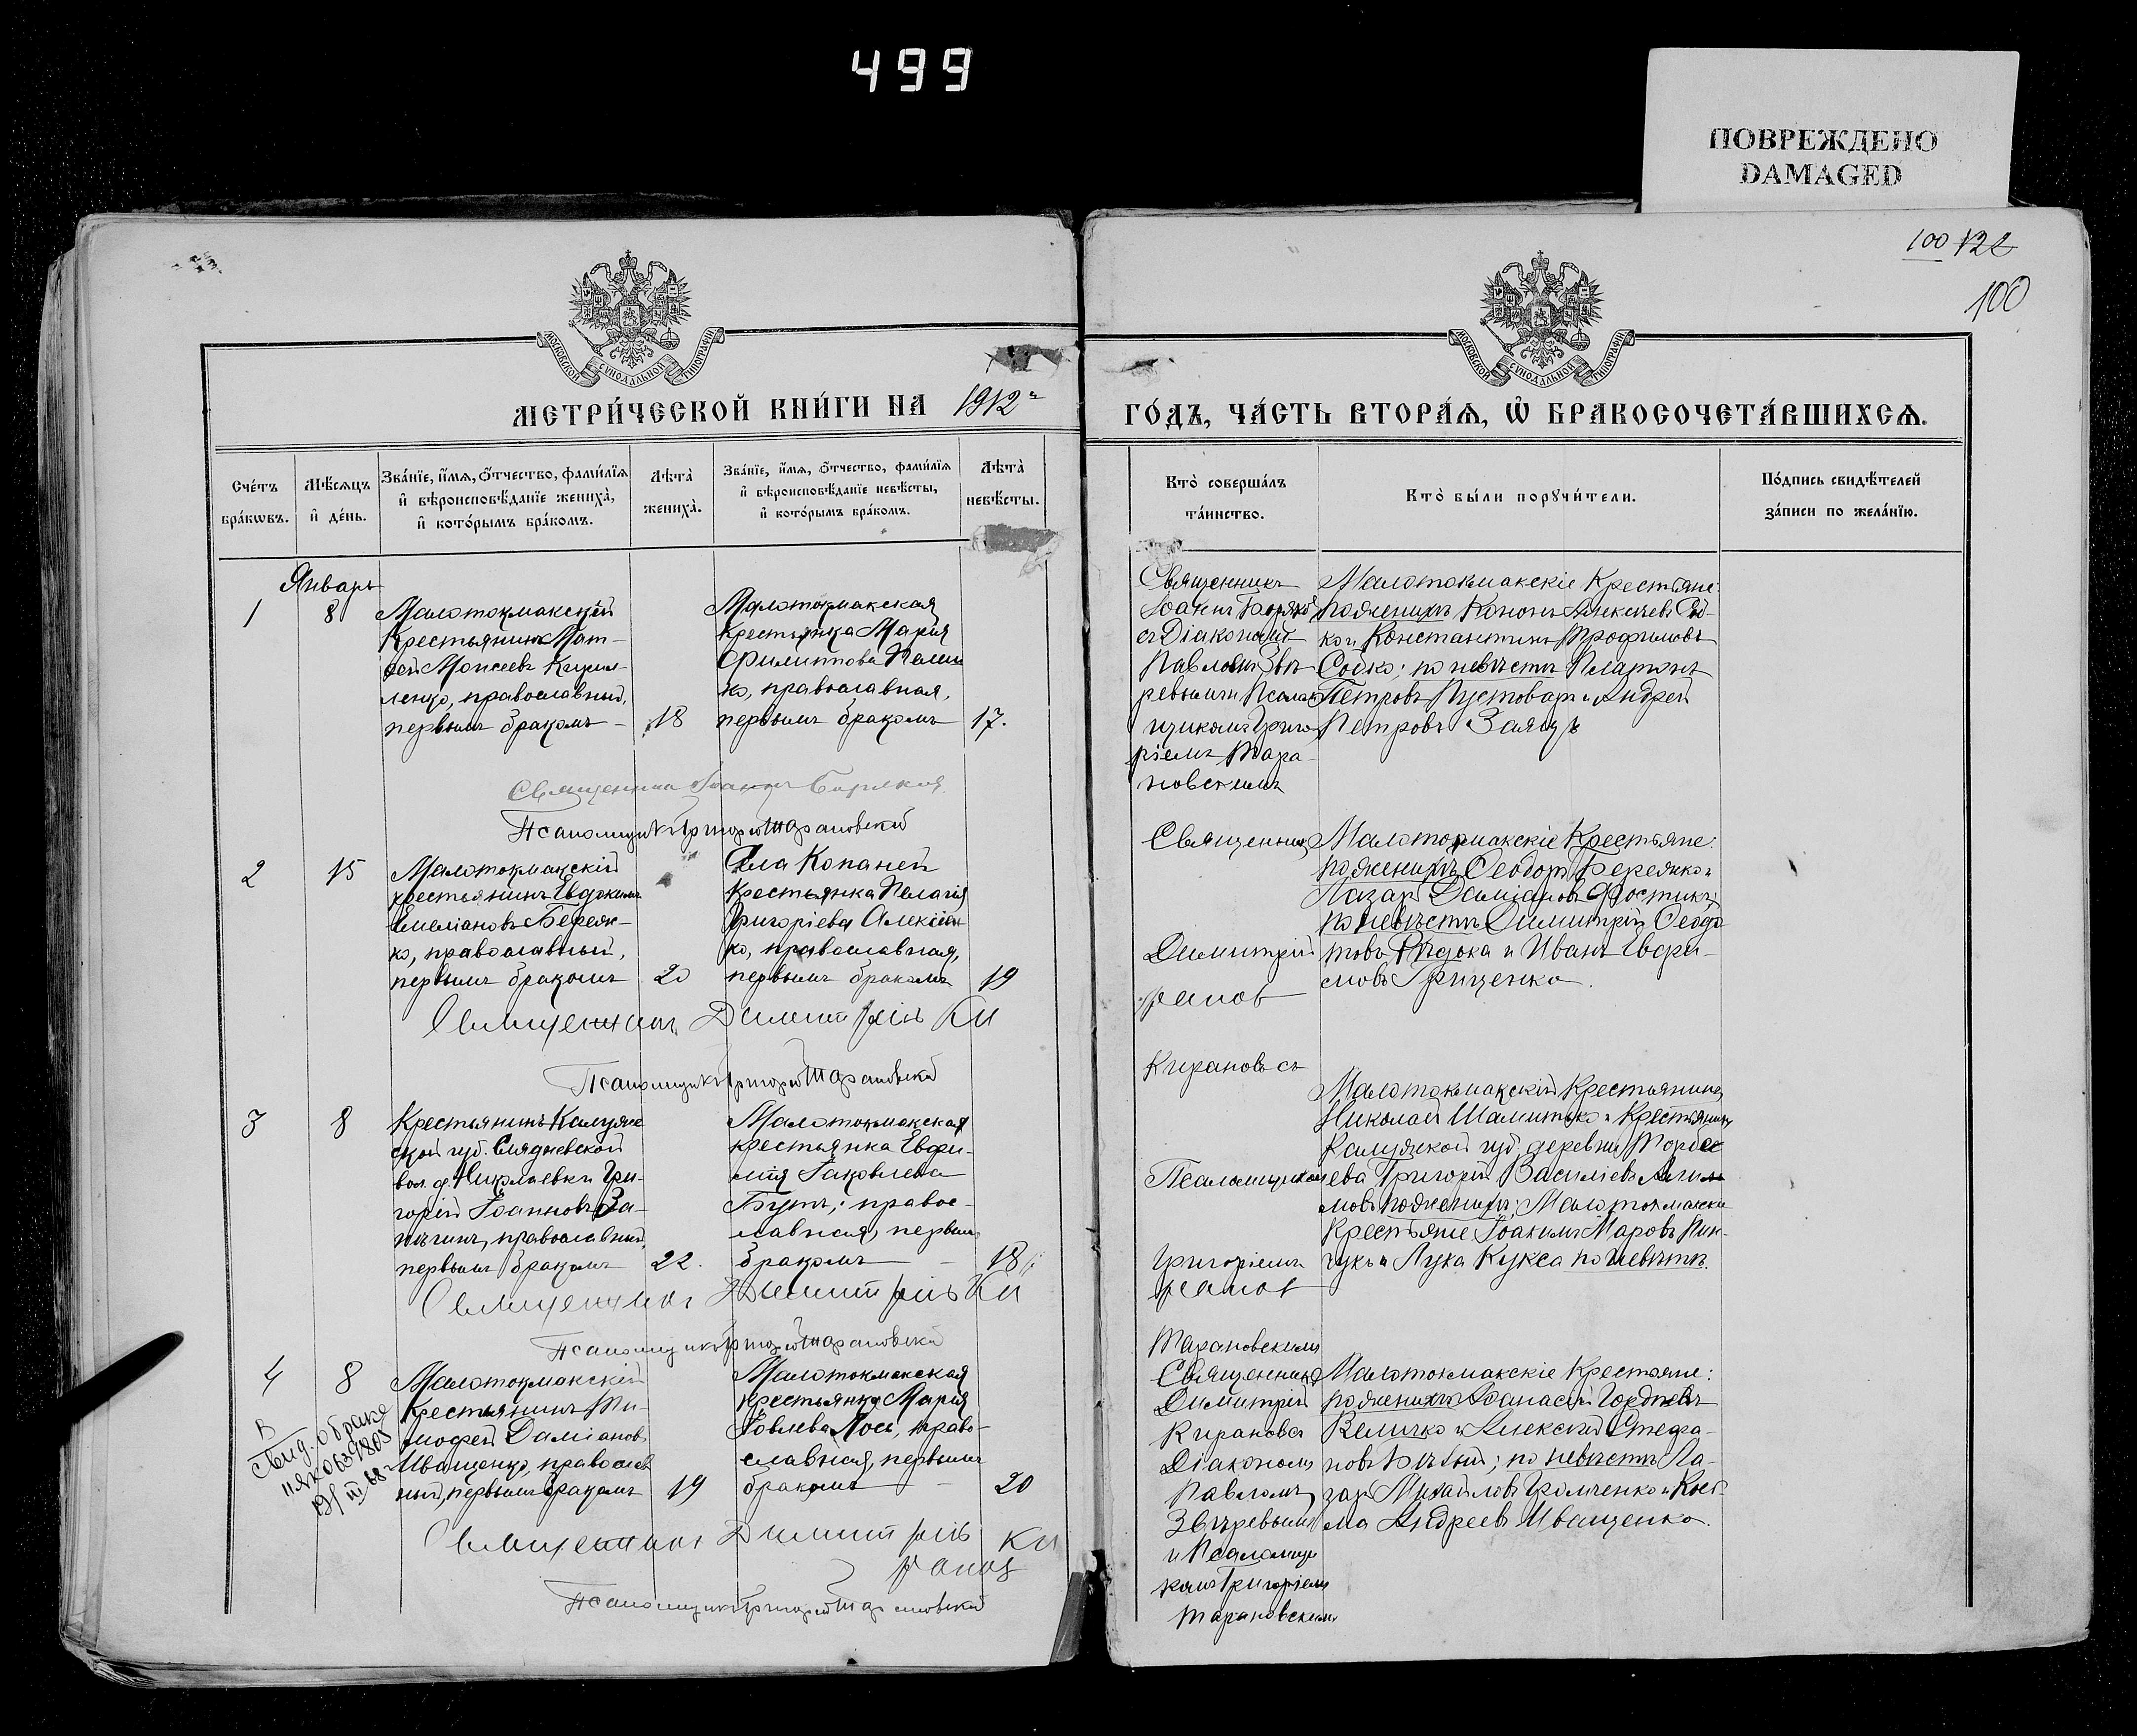 499
ПОВРЕЖДЕНО
DAMAGED
100 122
100
МОСКОВСКОЙ СѴНОДАЛЬНОЙ ТИПОГРАФІИ
МОСКОВСКОЙ СѴНОДАЛЬНОЙ ТИПОГРАФІИ
МЕТРИ́ЧЕСКОЙ КНИ́ГИ НА 1912й
ГО́ДЪ, ЧА́СТЬ ВТОРА́Я, Ѡ҆ БРАКОСОЧЕТА́ВШИХСЯ.
Сче́тъ
бра́ковъ.
Мѣ́сяцъ
и҆ де́нь.
Зва́нїе, и҆́мя, о҆́тчество, фами́лїя
и҆ вѣроисповѣ́данїе жениха̀,
и҆ кото́рымъ бра́комъ.
Лѣта̀
жениха̀.
Зва́нїе, и҆́мя, о҆́тчество, фами́лїя
и҆ вѣроисповѣ́данїе невѣ́сты,
и҆ кото́рымъ бра́комъ.
Лѣта̀
невѣ́сты.
Кто̀ соверша́лъ
та́инство.
Кто̀ бы́ли порꙋчи́тели.
По́дпись свидѣ́телей
за́писи по жела́нїю.
Январь
1
8
Малотокмакскій
Крестьянинъ Мат-
фей Моисеевъ Кирил-
ленко, православный,
первымъ бракомъ
18
Малотокмакская
Крестьянка Марія
Филиппова
ко, православная,
первымъ бракомъ
17.
Священникъ
Іоаннъ
съ Діакономъ
Павломъ Звѣ-
ревымъ и Псалом
щикомъ Григо
ріемъ Тара-
новскимъ
Малотокмакскіе Крестьяне:
по женихѣ Кононъ Алексѣевъ Сой-
ко и Константинъ Трофимовъ
Сойко; по невѣстѣ Платонъ
Петровъ Пустоваръ и Андрей
Петровъ Заяцъ
Священникъ Іоаннъ
Псаломщикъ Григорій Тарановскій
2
15
Малотокмакскій
крестьянинъ Евдокимъ
Емеліановъ Береж-
ко, православный,
первымъ бракомъ
20
Села Копаней
Крестьянка Пелагія
Григоріева Алексіен
ко, православная,
первымъ бракомъ
19
Священникъ
Димитрій
Малотокмакскіе Крестьяне:
по женихѣ Ѳеодоръ Бережко и
Лазарь Даміановъ Фостикъ;
по невѣстѣ Димитрій Ѳеодо
товъ Рѣдока и Иванъ Евфи-
мовъ Грищенко.
Священникъ Димитрій Ки
рановъ
Псаломщикъ Григорій Тарановскій
Кирановъ съ
3
8
Крестьянинъ Калуж
ской губ.
вол. д. Николаевки Гри-
горій Іоанновъ
православный,
первымъ бракомъ
22.
Малотокмакская
крестьянка Евфи-
мія Іаковлева
Бутъ; право-
славная, первымъ
бракомъ
18
Псаломщикомъ
Григоріемъ
Малотокмакскій Крестьянинъ
Николай и Крестьянинъ
Калужской губ. деревни
Григорій Василіевъ
по женихѣ; Малотокмакскіе
Крестьяне Іоакимъ Маровъ Пин-
чукъ и Лука Кукса по невѣстѣ.
Священникъ Димитрій Ки
рановъ
Псаломщикъ Григорій Тарановскій
Тарановскимъ
4
8
Малотокмакскій
Крестьянинъ Ти-
мофей Даміановъ
Иващенко, православ
ный, первымъ бракомъ
19
Малотокмакская
крестьянка Марія
Іовлева Лось, право-
славная, первымъ
бракомъ
20
В
Свид. о браке
II ЯК 0639805
19/III 68 г
Священникъ
Димитрій
Кирановъ съ
Діакономъ
Павломъ
Звѣревымъ
и Псаломщи
комъ Григоріемъ
Тарановскимъ
Малотокмакскіе Крестьяне:
по женихѣ Аѳанасій Гордѣевъ
Величко и Алексій Стефа-
новъ по невѣстѣ Ла-
зарь Михайловъ Громченко и Кось-
ма Андреевъ Иващенко.
Священникъ Димитрій Ки
рановъ
Псаломщикъ Григорій Тарановскій